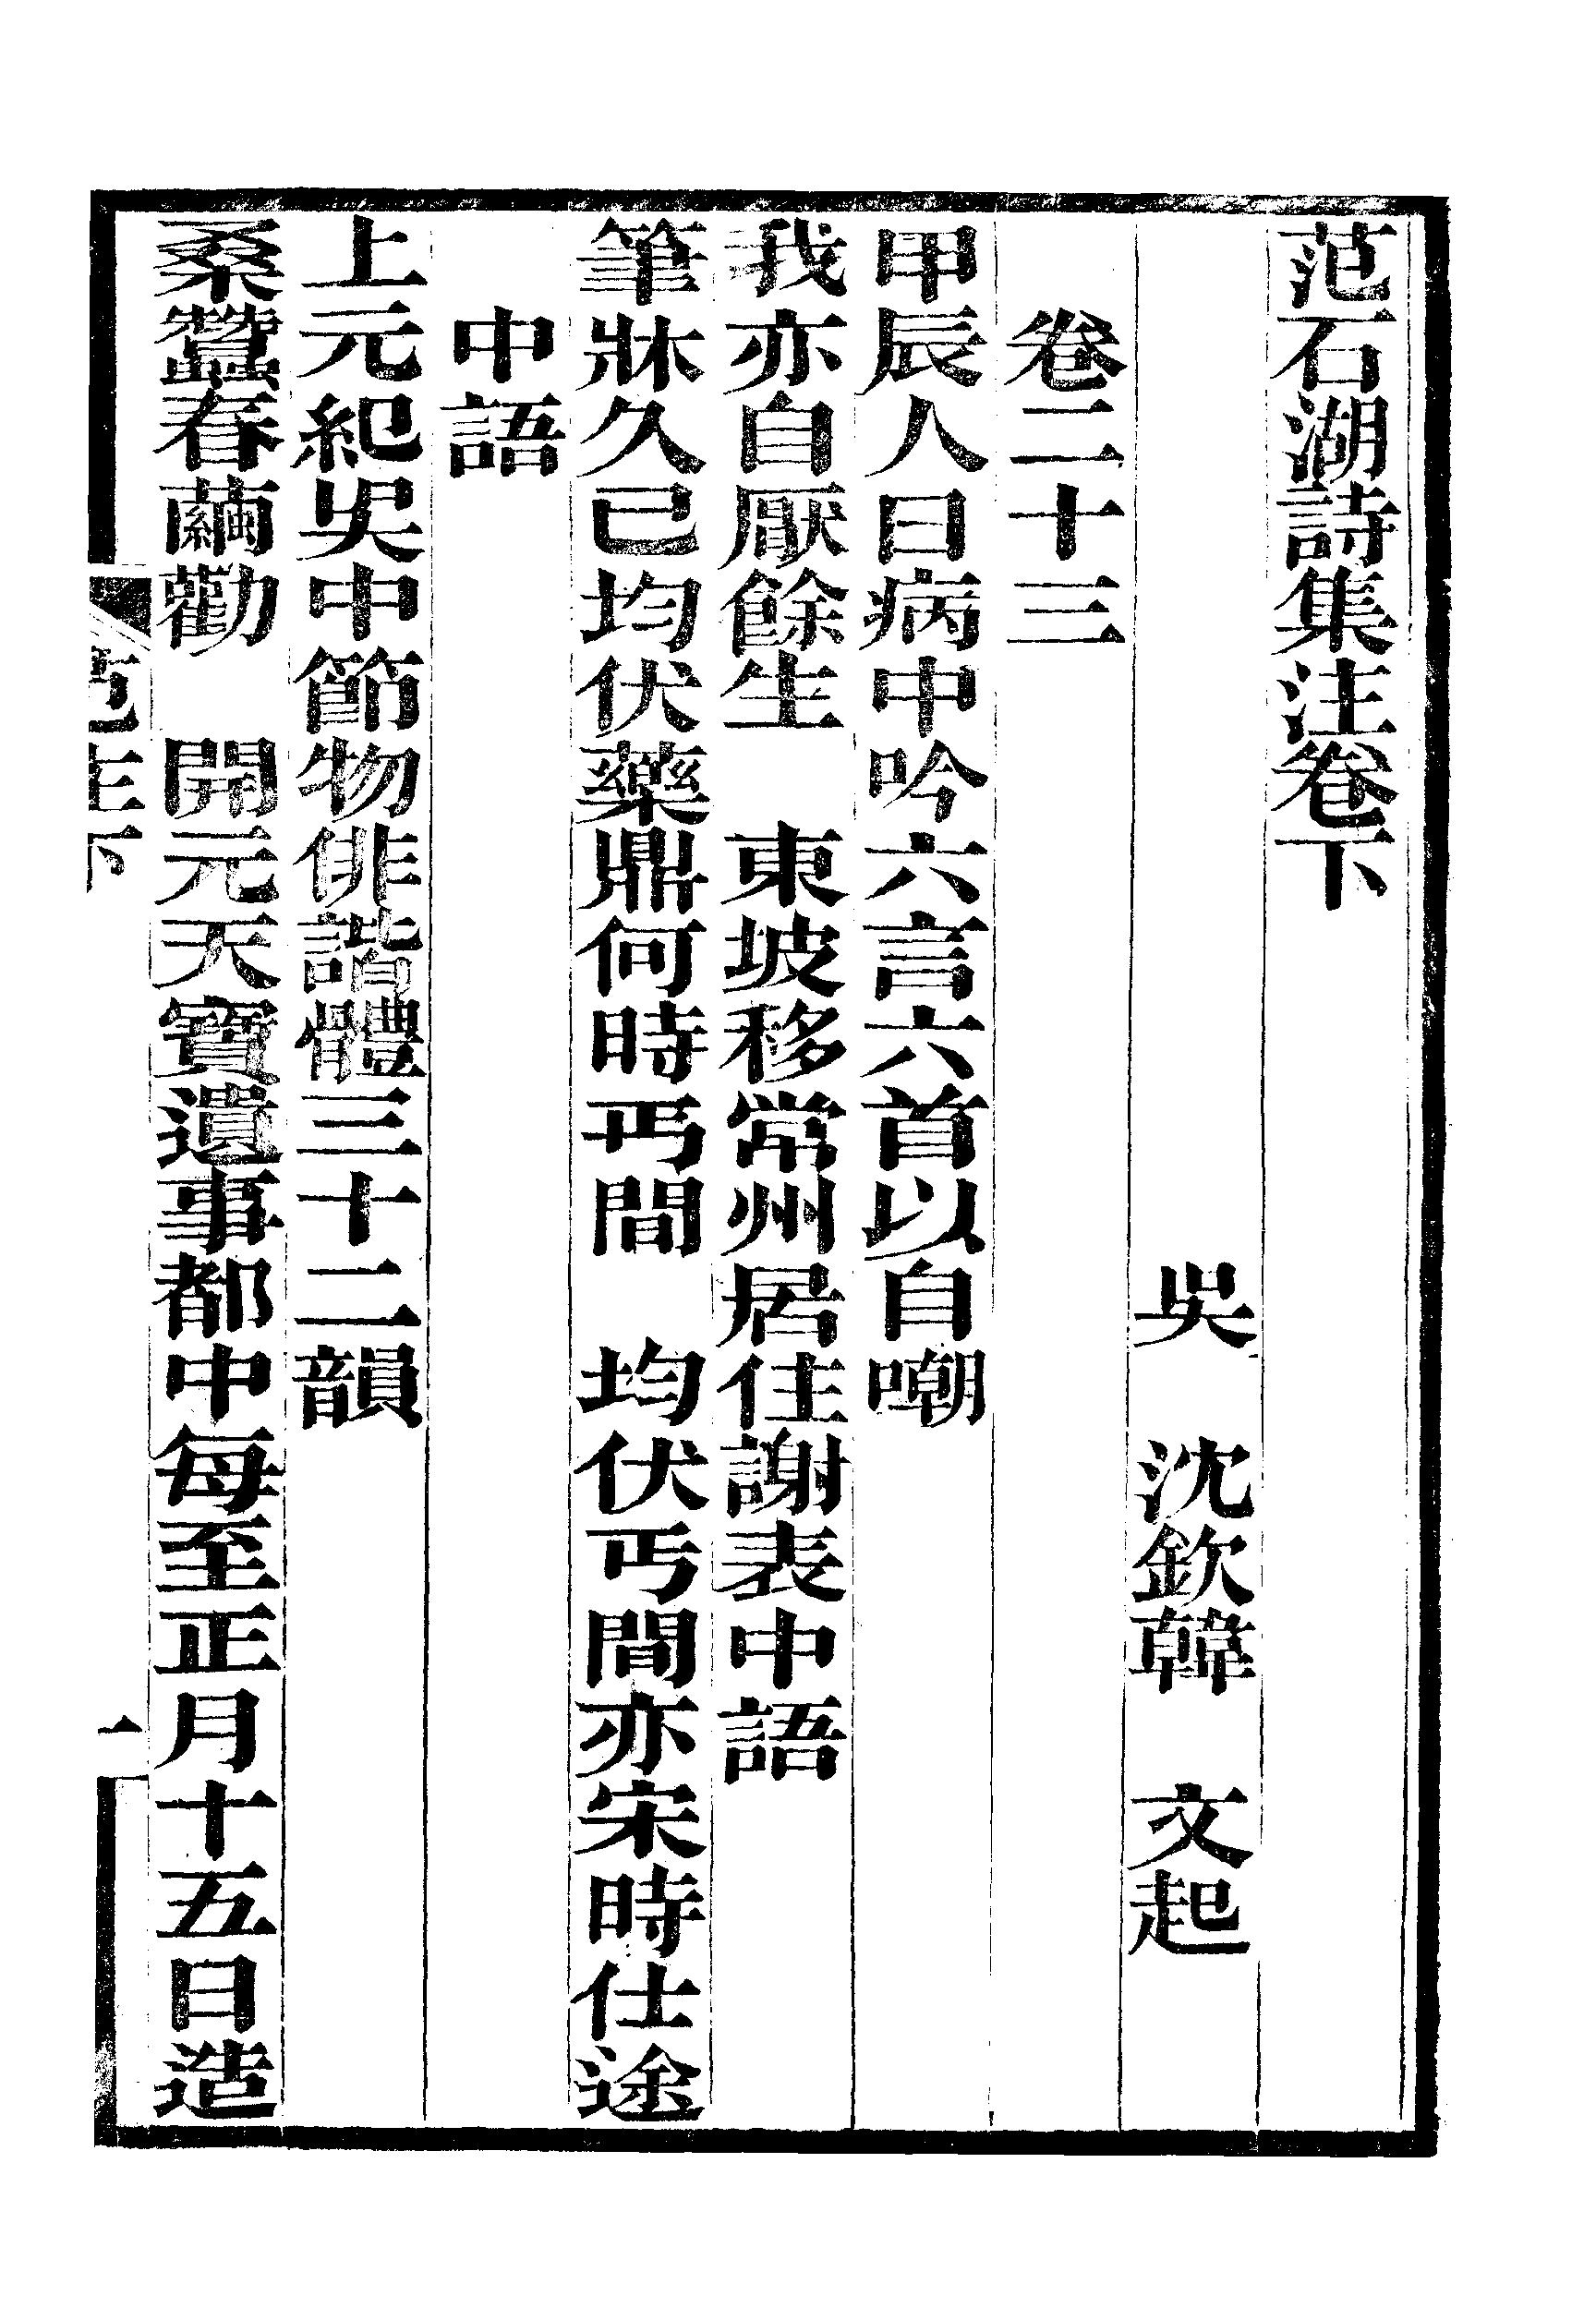 范石湖詩集注卷下
吳　沈欽韓　文起
卷二十三
甲辰人日病中吟六言六首以自嘲
我亦自厭餘生　東坡移常州居住謝表中語
筆牀久已均伏藥鼎何時丐間　均伏丐間亦宋時仕途
中語
上元紀吳中節物俳諧體三十二韻
桑蠶春繭勸　開元天寶遺事都中每至正月十五日造
范注下
一